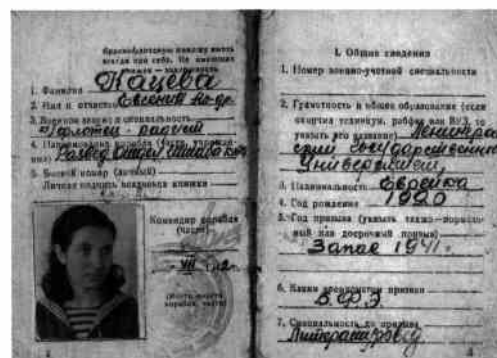 Краснофлотскую книжку иметь
всегда при себе. Не имеющих
книжек — задерживать.
1. Фамилия Кацева
2. Имя и отчество Евгения
3. Военное звание и специальность
Кр-флотец - радист
4. Наименование корабля (части, учреждения)
Развед. Отдел Штаба
5. Боевой номер (личный)
Личная подпись владельца книжки
Командир корабля
(части)
VII 1942 г.
(Место печати
корабля, части)
1
I. Общие сведения
1. Номер военно-учетной специальности
2. Грамотность и общее образование (если
окончил успешную, рабфак или ВУЗ, то
указать его название) Ленинград
ский Государственный
Университет
3. Национальность Еврейка
4. Год рождения 1920
5. Год призыва (указать также — нормальный или досрочный призыв)
Запас 1941 г.
6. Каким военкоматом призван
7. Специальность до призыва
Литературовед